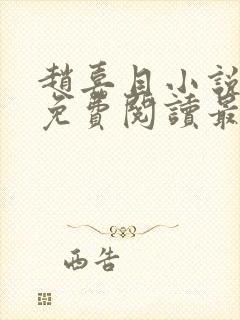 趙喜目小說
免費閱讀最
西告